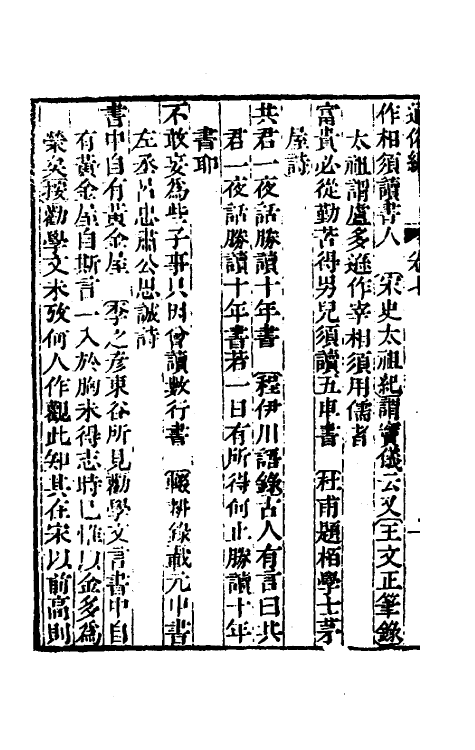 通俗編 卷七
作相須讀書人 宋史太祖紀謂竇儀云又王文正筆錄
太祖謂盧多遜作宰相須用儒者
富貴必從勤苦得男兒須讀五車書 杜甫題栢學士茅
屋詩
共君一夜話勝讀十年書 程伊川語錄古人有言曰共
君一夜話勝讀十年書若一日有所得何止勝讀十年
書耶
不敢妄為些子事只因曾讀數行書 輟耕錄載元中書
左丞呂忠肅公思誠詩
書中自有黃金屋 李之彥東谷所見勸學文言書中自
有黃金屋自斯言一入於胸未得志時已惟以金多為
榮矣按勸學文未攷何人作觀此知其在宋以前高則